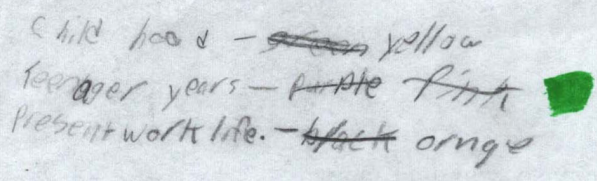 Child hood - green yellow
Teenager years - purple pink
Present work life. - black ornge